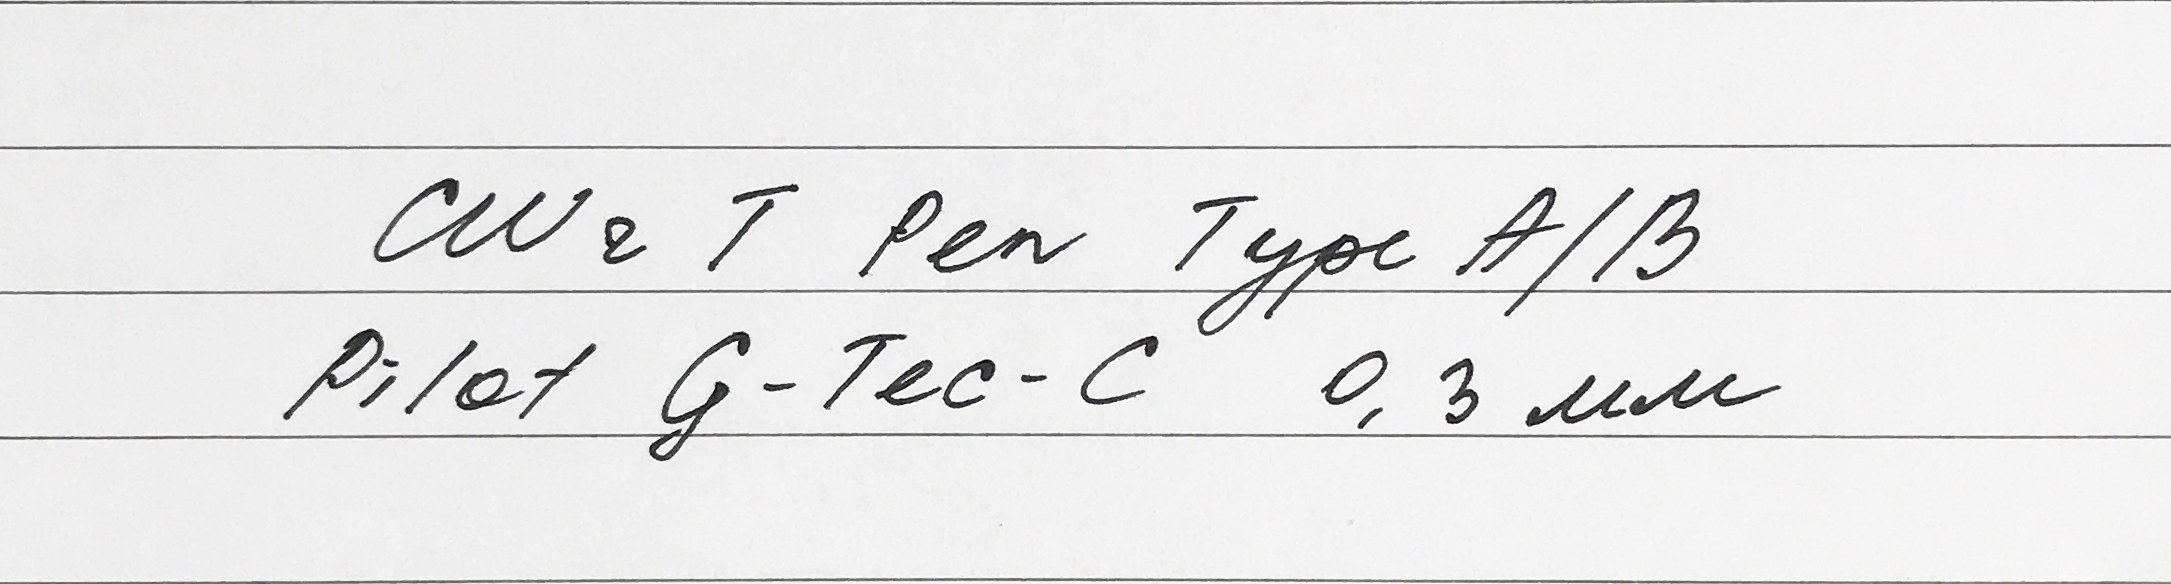 CW&T Pen Type A/B
Pilot G-Tec-C 0,3 мм